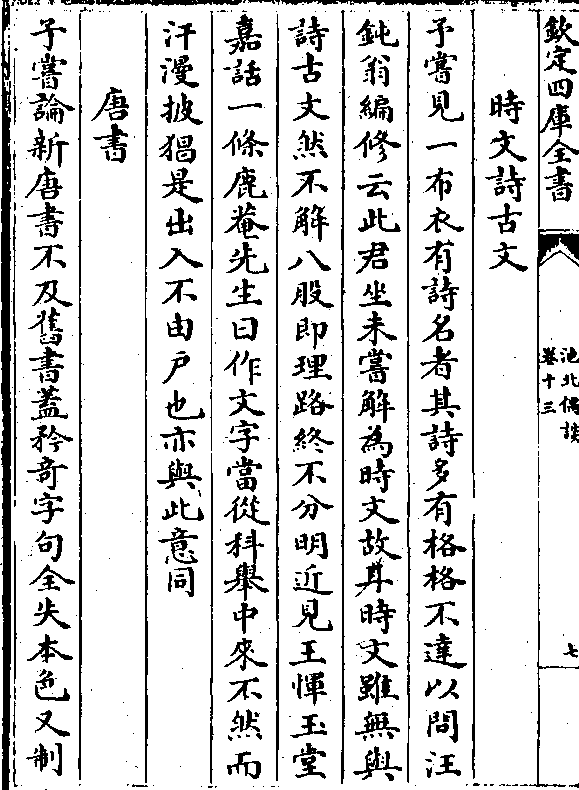 欽定四庫全書
池北偶談
卷十三
七
時文詩古文
予嘗見一布衣有詩名者其詩多有格格不達以問汪
鈍翁編修云此君坐未嘗解為時文故耳時文雖無與
詩古文然不解八股即理路終不分明近見王惲玉堂
嘉話一條鹿菴先生曰作文字當從科舉中來不然而
汗漫披猖是出入不由戶也亦與此意同
唐書
予嘗論新唐書不及舊書蓋矜奇字句全失本色又制